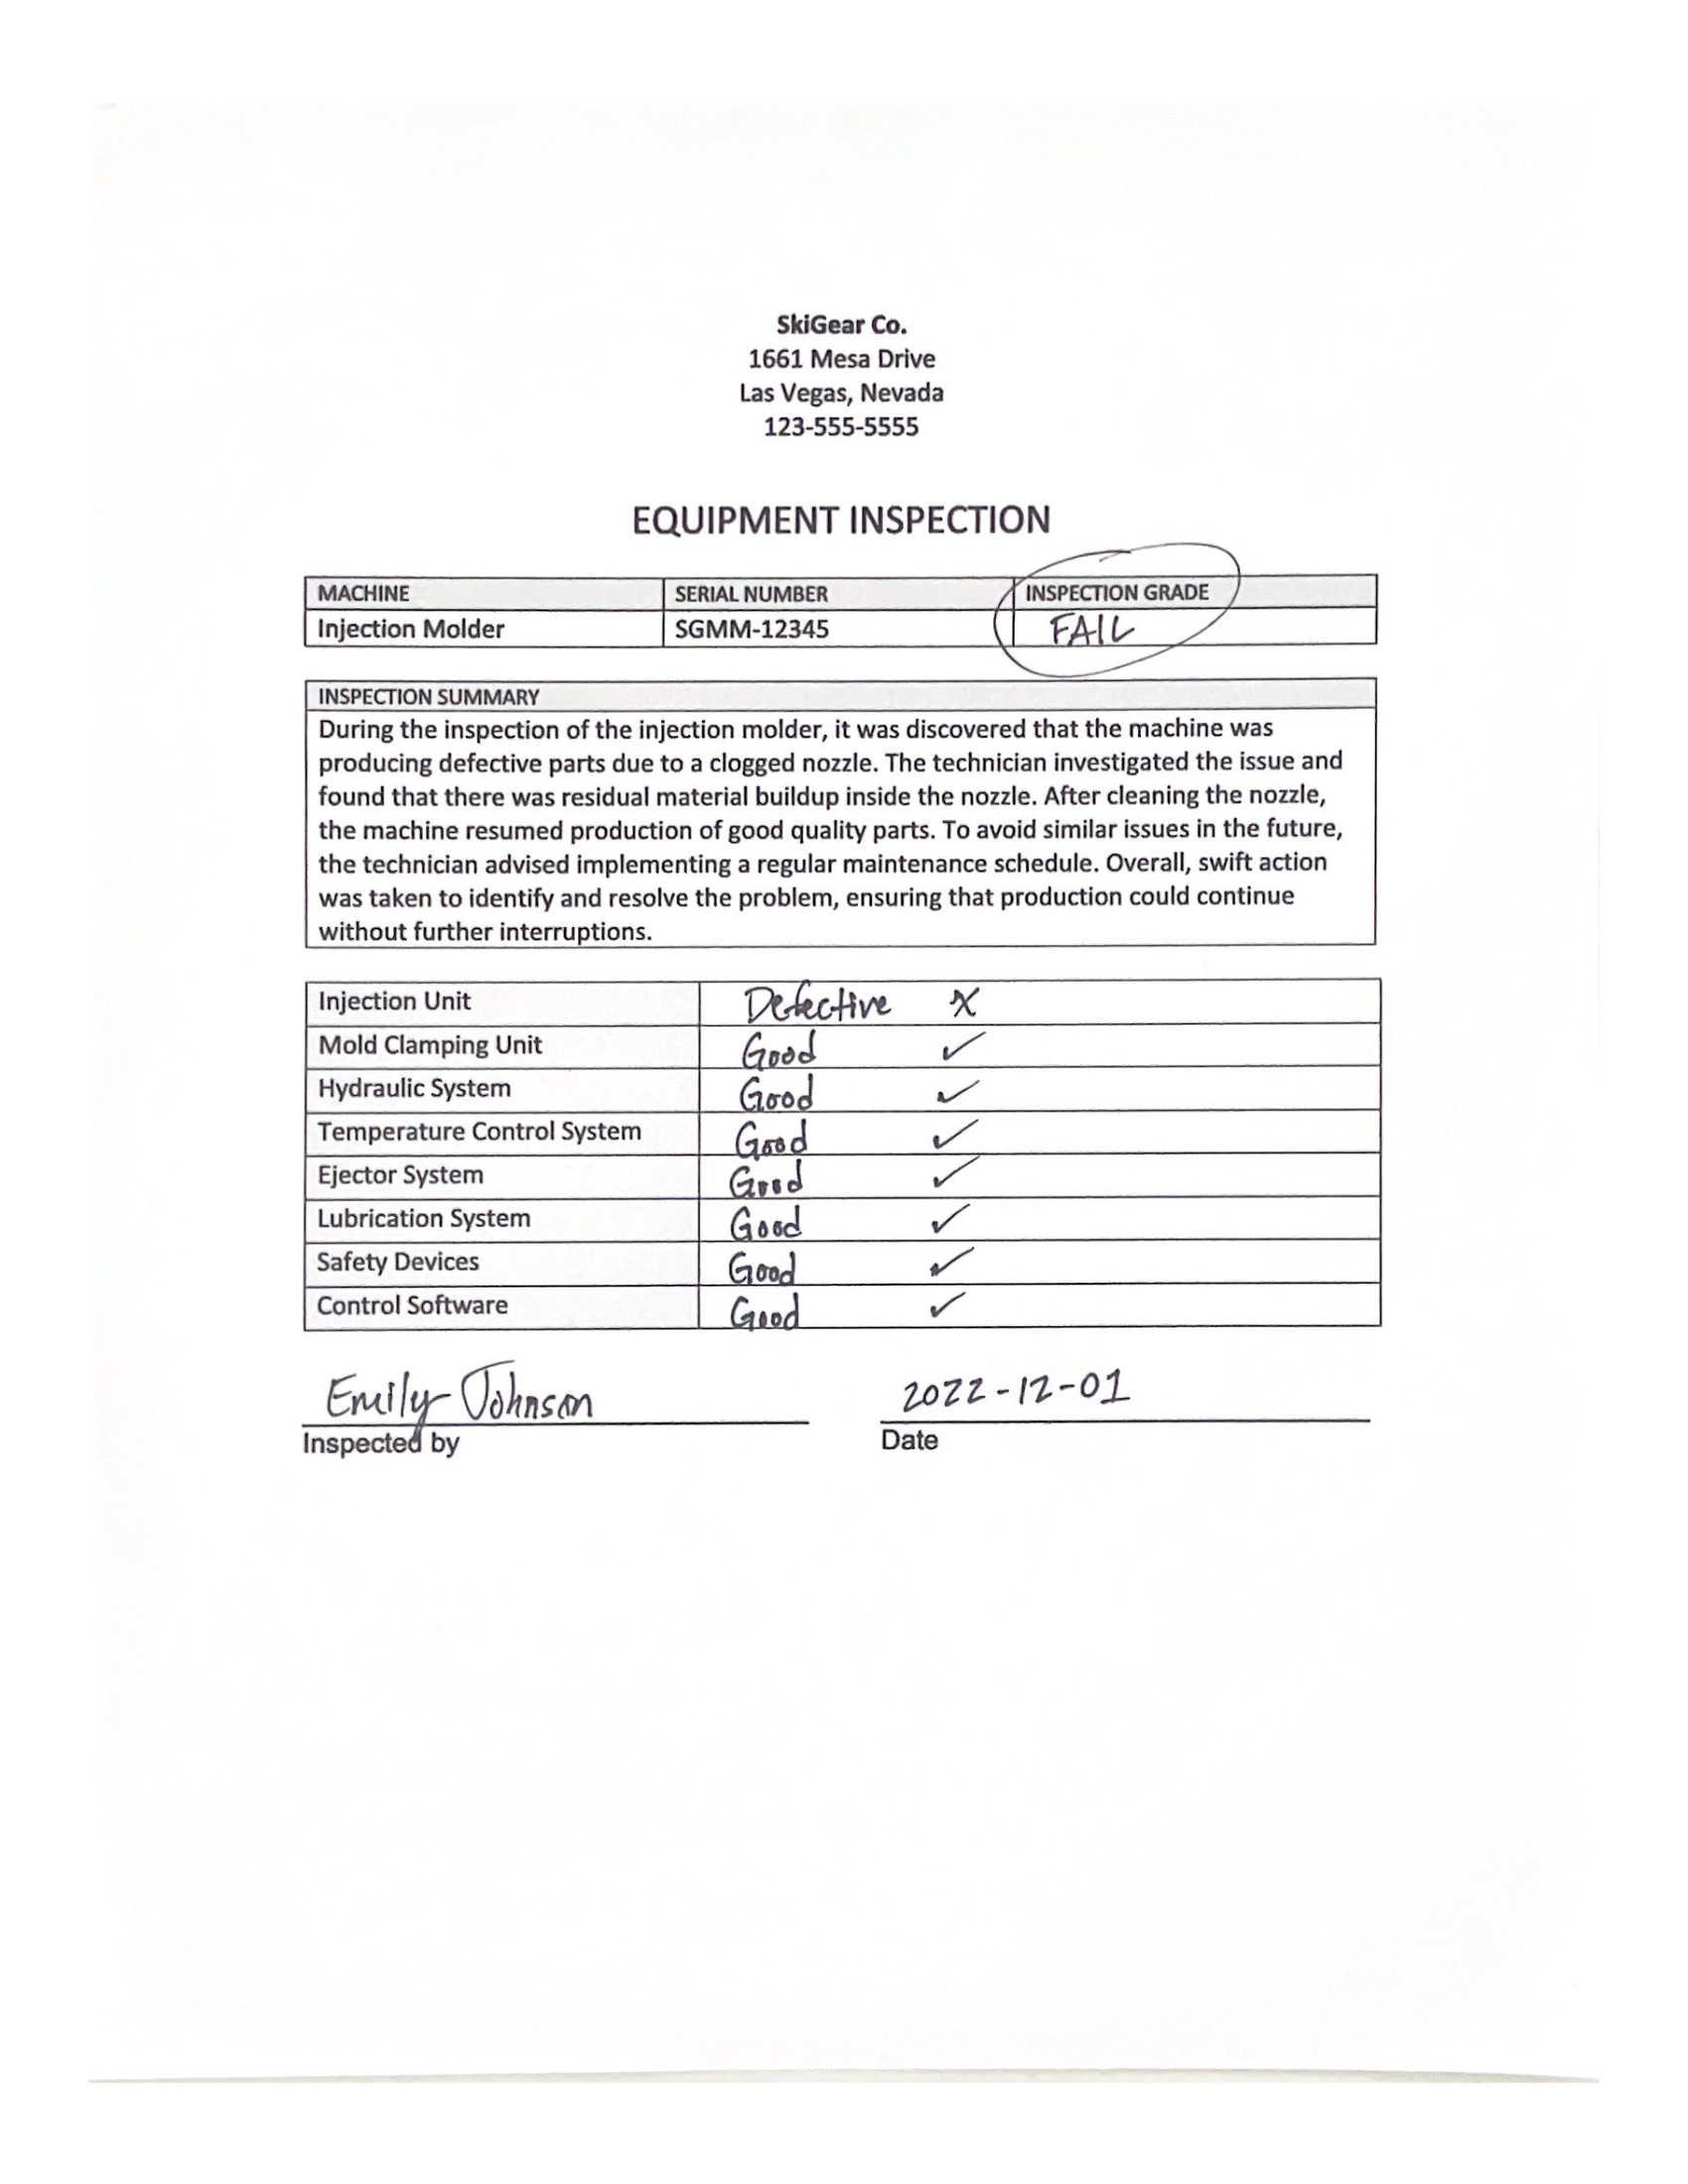 SkiGear Co.
1661 Mesa Drive
Las Vegas, Nevada
123-555-5555
EQUIPMENT INSPECTION
MACHINE SERIAL NUMBER INSPECTION GRADE
Injection Molder SGMM-12345 FAIL
INSPECTION SUMMARY
During the inspection of the injection molder, it was discovered that the machine was
producing defective parts due to a clogged nozzle. The technician investigated the issue and
found that there was residual material buildup inside the nozzle. After cleaning the nozzle,
the machine resumed production of good quality parts. To avoid similar issues in the future,
the technician advised implementing a regular maintenance schedule. Overall, swift action
was taken to identify and resolve the problem, ensuring that production could continue
without further interruptions.
Injection Unit Defective ✗
Mold Clamping Unit Good ✓
Hydraulic System Good ✓
Temperature Control System Good ✓
Ejector System Good ✓
Lubrication System Good ✓
Safety Devices Good ✓
Control Software Good ✓
Emily Johnson 2022-12-01
Inspected by Date